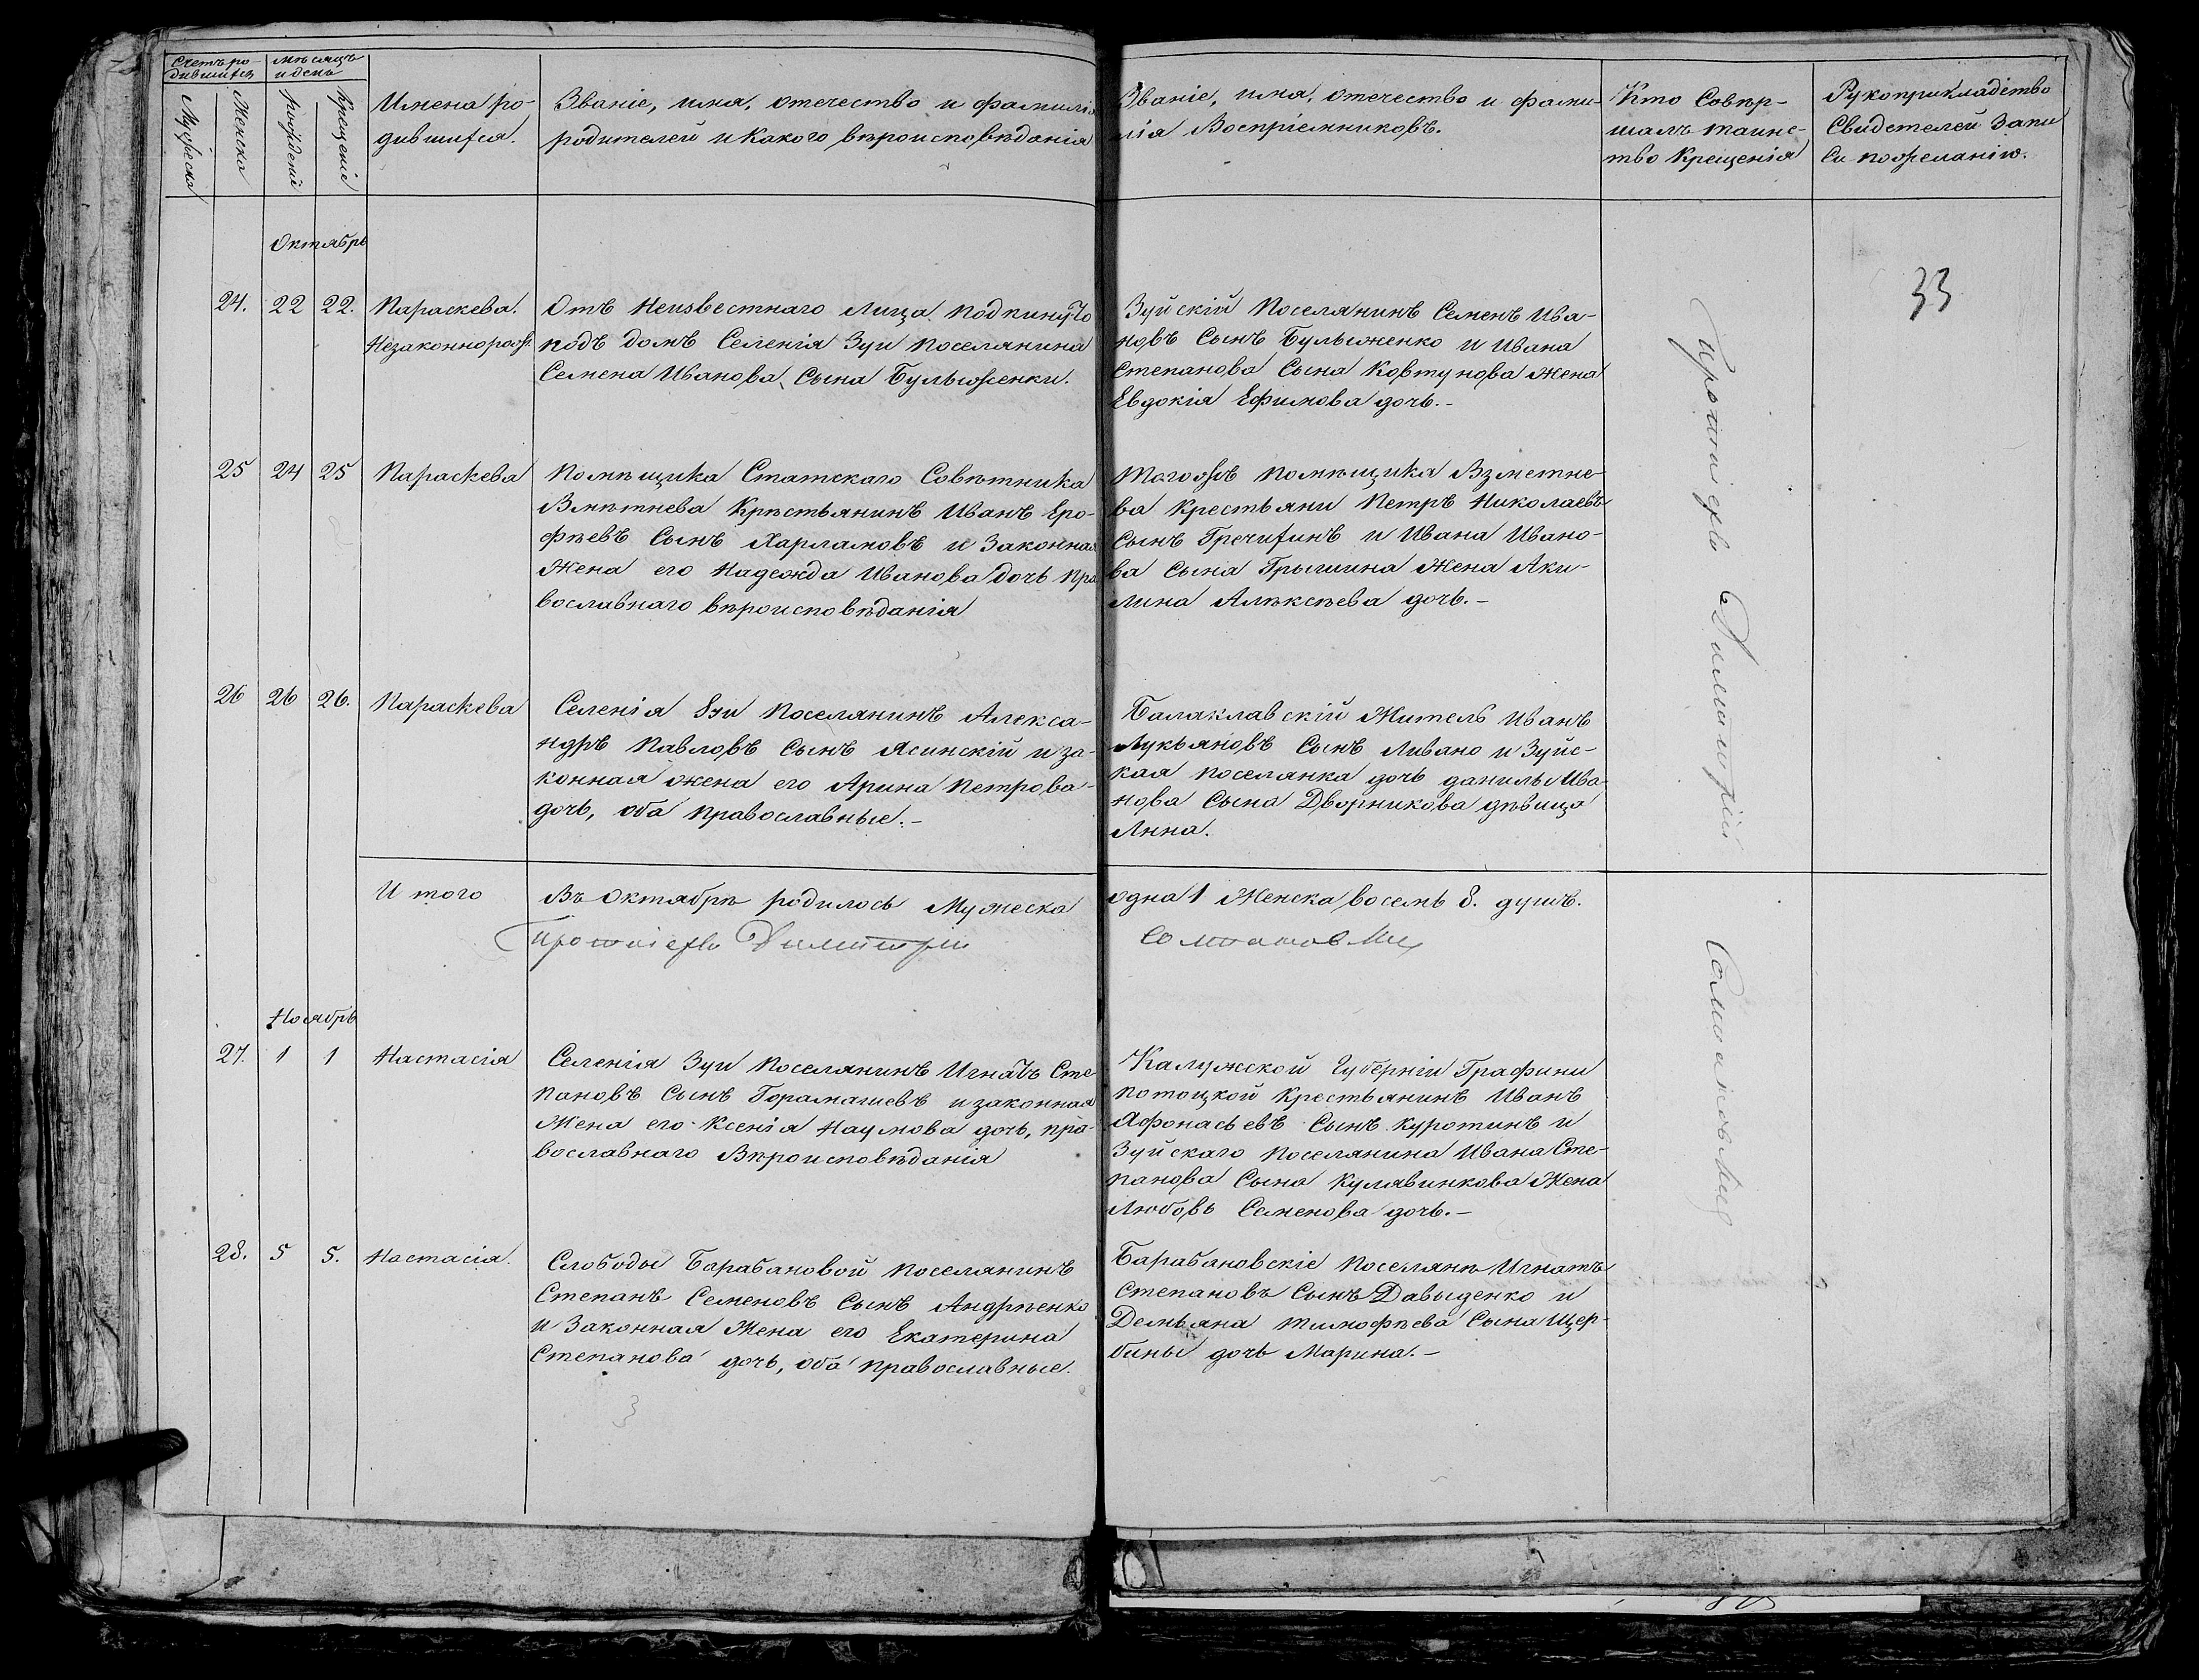 Счетъ ро-
дившихся
мѣсяцъ
и день
Мужеска
Женска
рожденіе
крещеніе
Имена ро-
дившихся.
Званіе, имя, отечество и фамилія
родителей и какого вѣроисповѣданія
Званіе, имя, отечество и фами-
лія Воспріемниковъ.
Кто Совер-
шалъ таинс-
тво Крещенія
Рукоприкладство
Свидетелей Запи
си пожеланію.
33
Октябрь
24. 22 22. Параскева.
Незаконнорож.
Отъ Неизвестнаго лица подкинуто
подъ домъ Селенія Зуи поселянина
Семена Иванова Сына Бульженки.
Зуйскій Поселянинъ Семенъ Ива-
новъ Сынъ Бульженко и Ивана
Степанова Сына Ковтунова жена
Евдокія Ефимова дочь.-
25 24 25 Параскева
Помѣщика Статскаго Совѣтника
Взметнева Крѣстьянинъ Иванъ Еро-
фѣевъ Сынъ Харламовъ и Законная
Жена его Надежда Иванова дочь пра
вославнаго вѣроисповѣданія
Тогожъ помѣщика Взметне-
ва Крестьяни Петръ Николаевъ
Сынъ Гречихинъ и Ивана Ивано-
ва Сына Грышина Жена Аку-
лина Алѣксѣева дочь.-
26 26 26. Параскева
Селенія Зуи Поселянинъ Алекса-
ндръ Павловъ Сынъ Ясинскій и за-
конная жена его Арина Петрова
дочь, оба православные.-
Балаклавскій Житель Иванъ
Лукьяновъ Сынъ Ливано и Зуйс-
кая поселянка дочь данилы Ива-
нова Сына Дворникова дѣвица
Анна.
Итого
Въ Октябрѣ родилось Мужеска
одна 1 Женска восемь 8. душъ.
Протоіерей Димитрій
Протоіерей Димитрій
Ноябрь
27. 1 1 Настасія
Селенія Зуи Поселянинъ Игнатъ Сте
пановъ Сынъ Горамашевъ и законная
Жена его Ксенія Наумова дочь, пра-
вославнаго Вѣроисповѣданія
Калужской Губерніи Графини
потоцкой Крестьянинъ Иванъ
Афонасьевъ Сынъ Куротинъ и
Зуйскаго поселянина Ивана Сте-
панова Сына Кулявинкова Жена
Любовь Семенова дочь.-
28. 5 5. Настасія.
Слободы Барабановой поселянинъ
Степанъ Семеновъ Сынъ Андрѣенко
и Законная Жена его Екатерина
Степанова дочь, оба православные.
Барабановскіе поселянѣ Игнатъ
Степановъ Сынъ Давыденко и
Демьяна Тимофѣева Сына Щер-
бины дочь Марина.-